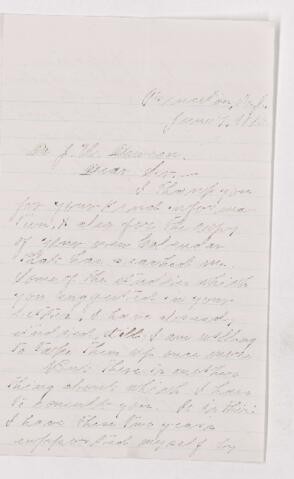 Princeton, N.J.
June 7, 18
Dr. J. W. Dawson.
Dear Sir—
I thank you
for your kind informa
tion, & also for the copy
of your new Calendar
that has reached me.
Some of the studies which
you suggested in your
letter, I have already
studied, still I am willing
to take them up once more.
But there is another
thing about which I have
to consult you. It is this:
I have these two years
supported myself by